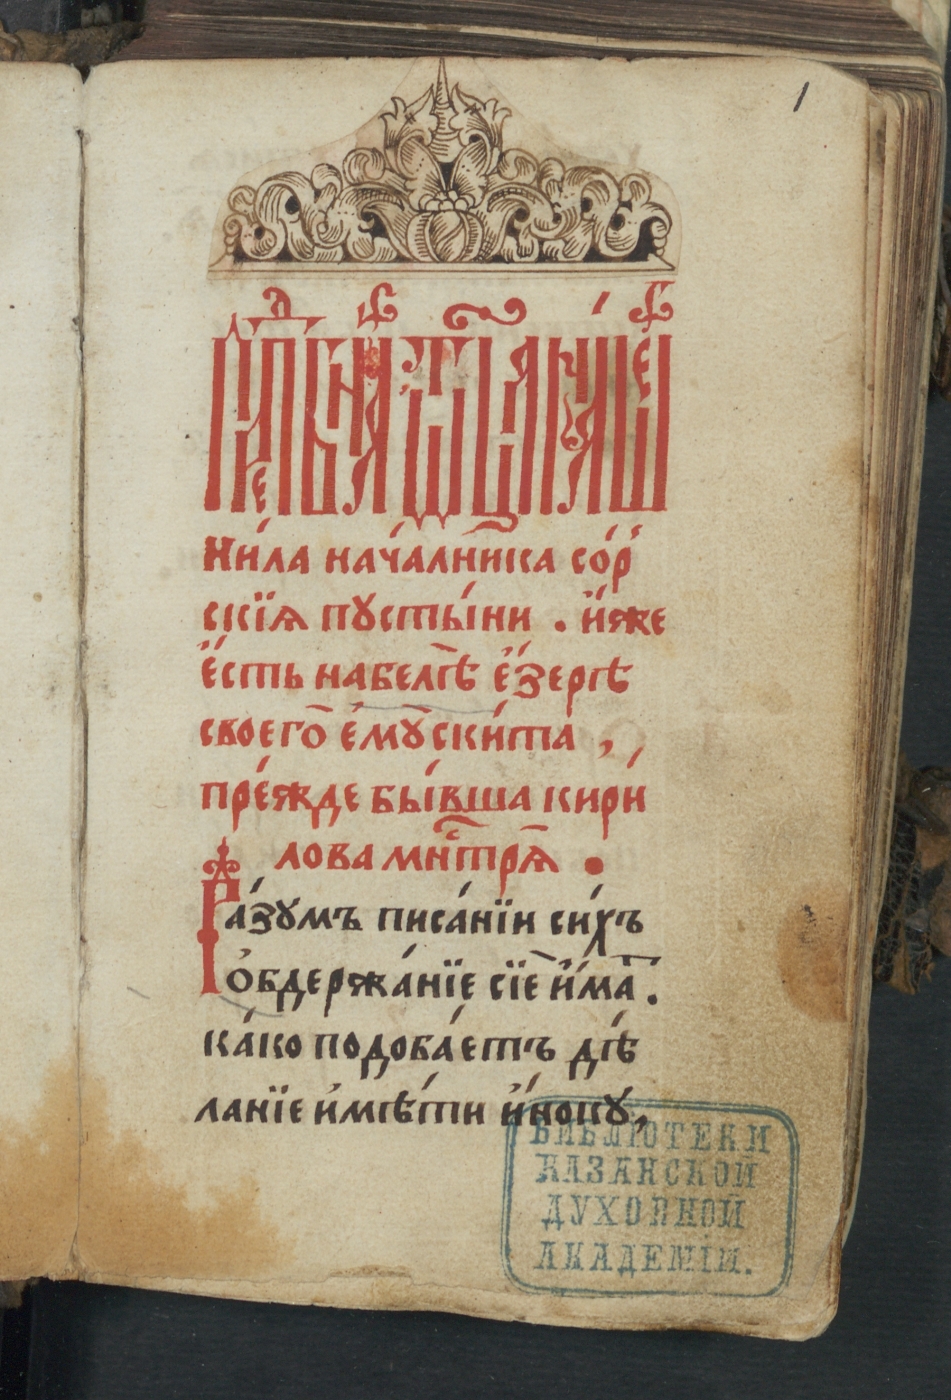 1
Ни́ла нача́лника со́р
скїѧ пусты́ни . и҆́же
е҆́сть набелѣ̀ е҆́зерѣ
своего̀ е҆мꙋ̀ ски́та ,
пре́жде бы́вша кири́
лова мнⷭ҇трѧ̀ .
Ра́зумъ писа́нїи си́хъ
о҆бдержа́нїе сїѐ и҆́ма .
ка́ко подоба́етъ дѣ́
ланїе и҆мѣ́ти и҆́нокꙋ ,
БИБЛІОТЕКИ
КАЗАНСКОЙ
ДУХОВНОЙ
АКАДЕМІИ.